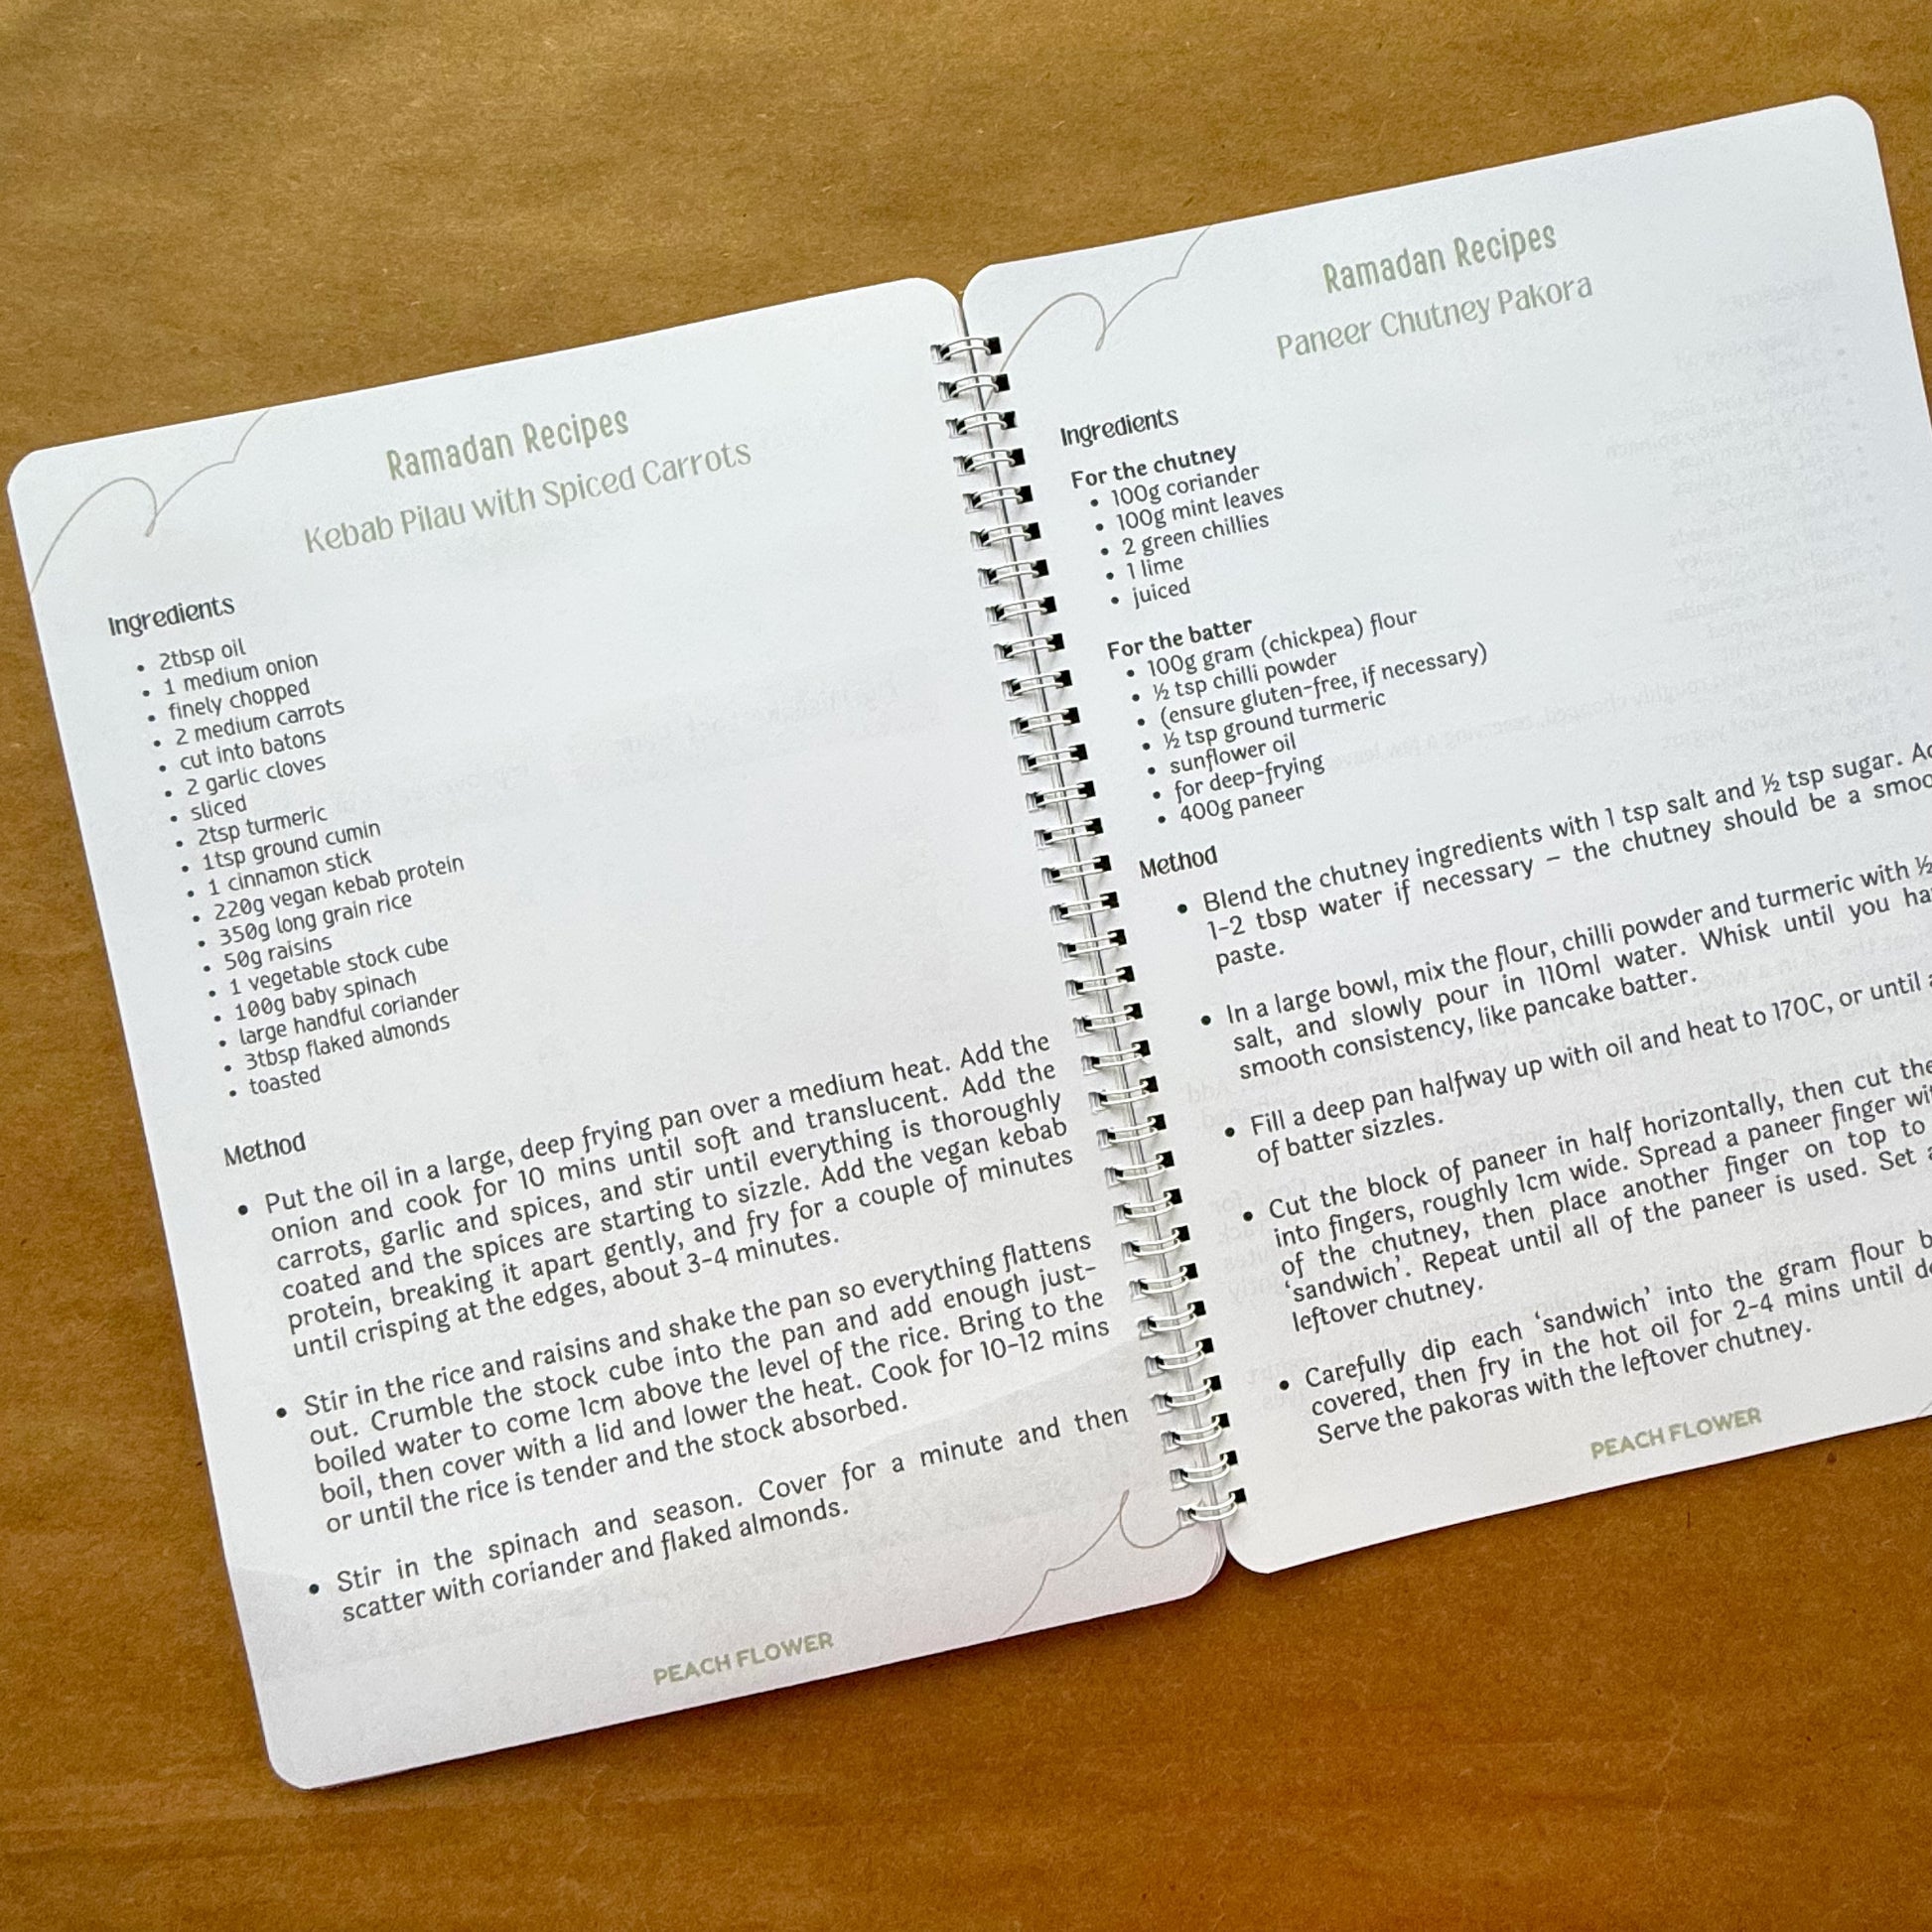 Ramadan Recipes
Kebab Pilau with Spiced Carrots
Ingredients
• 2tbsp oil
• 1 medium onion
• finely chopped
• 2 medium carrots
• cut into batons
• 2 garlic cloves
• sliced
• 2tsp turmeric
• 1tsp ground cumin
• 1 cinnamon stick
• 220g vegan kebab protein
• 350g long grain rice
• 50g raisins
• 1 vegetable stock cube
• 100g baby spinach
• large handful coriander
• 3tbsp flaked almonds
• toasted
Method
• Put the oil in a large, deep frying pan over a medium heat. Add the
onion and cook for 10 mins until soft and translucent. Add the
carrots, garlic and spices, and stir until everything is thoroughly
coated and the spices are starting to sizzle. Add the vegan kebab
protein, breaking it apart gently, and fry for a couple of minutes
until crisping at the edges, about 3-4 minutes.
• Stir in the rice and raisins and shake the pan so everything flattens
out. Crumble the stock cube into the pan and add enough just-
boiled water to come 1cm above the level of the rice. Bring to the
boil, then cover with a lid and lower the heat. Cook for 10-12 mins
or until the rice is tender and the stock absorbed.
• Stir in the spinach and season. Cover for a minute and then
scatter with coriander and flaked almonds.
PEACH FLOWER
Ramadan Recipes
Paneer Chutney Pakora
Ingredients
For the chutney
• 100g coriander
• 100g mint leaves
• 2 green chillies
• 1 lime
• juiced
For the batter
• 100g gram (chickpea) flour
• ½ tsp chilli powder
• (ensure gluten-free, if necessary)
• ½ tsp ground turmeric
• sunflower oil
• for deep-frying
• 400g paneer
Method
• Blend the chutney ingredients with 1 tsp salt and ½ tsp sugar.
1-2 tbsp water if necessary – the chutney should be a
paste.
• In a large bowl, mix the flour, chilli powder and turmeric with ½
salt, and slowly pour in 110ml water. Whisk until you
smooth consistency, like pancake batter.
• Fill a deep pan halfway up with oil and heat to 170C, or until
of batter sizzles.
• Cut the block of paneer in half horizontally, then cut
into fingers, roughly 1cm wide. Spread a paneer finger
of the chutney, then place another finger on top to
'sandwich'. Repeat until all of the paneer is used. Set
leftover chutney.
• Carefully dip each 'sandwich' into the gram flour
covered, then fry in the hot oil for 2-4 mins until
Serve the pakoras with the leftover chutney.
PEACH FLOWER